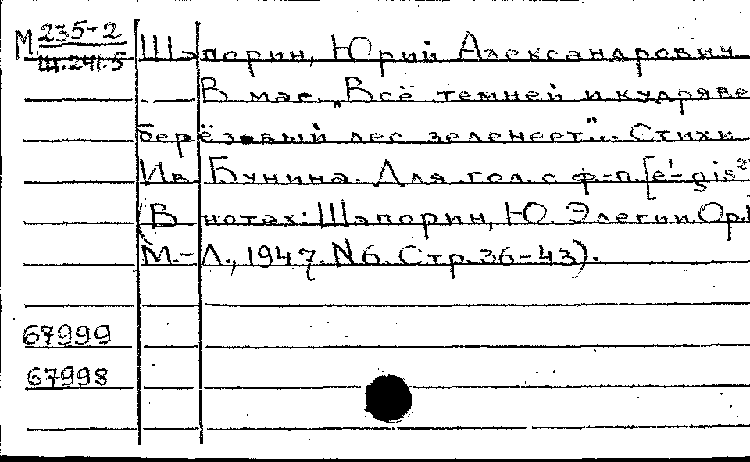 М 235-2
Ш.241.5
Шапорин, Юрий Александрович
В мае. „Всё темней и кудряве
берёзовый лес зеленеет“... Стихи
Ив. Бунина. Для гол. с ф-п. [e¹-gis²
(В нотах: Шапорин, Ю. Элегии. Ор
М.-Л., 1947. N6. Стр. 36-43).
67999
67998